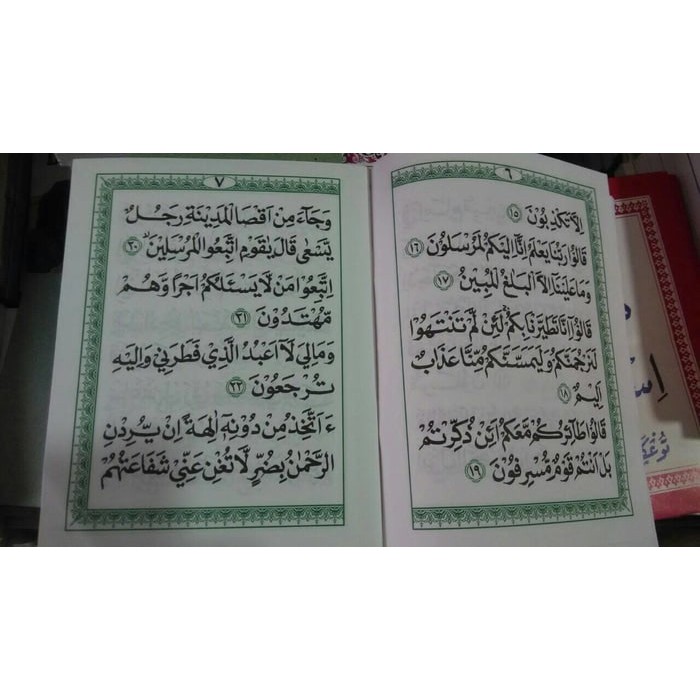 ٦
اِلَّا تَكْذِبُوْنَ ١٥
قَالُوْا رَبُّنَا يَعْلَمُ اِنَّآ اِلَيْكُمْ لَمُرْسَلُوْنَ ١٦
وَمَا عَلَيْنَآ اِلَّا الْبَلٰغُ الْمُبِيْنُ ١٧
قَالُوْا اِنَّا تَطَيَّرْنَا بِكُمْ لَئِنْ لَّمْ تَنْتَهُوْا
لَنَرْجُمَنَّكُمْ وَلَيَمَسَّنَّكُمْ مِّنَّا عَذَابٌ
اَلِيْمٌ ١٨
قَالُوْا طَآئِرُكُمْ مَّعَكُمْ اَئِنْ ذُكِّرْتُمْ
بَلْ اَنْتُمْ قَوْمٌ مُّسْرِفُوْنَ ١٩
٧
وَجَآءَ مِنْ اَقْصَا الْمَدِيْنَةِ رَجُلٌ
يَّسْعٰى قَالَ يٰقَوْمِ اتَّبِعُوا الْمُرْسَلِيْنَ ٢٠
اتَّبِعُوْا مَنْ لَّا يَسْـَٔلُكُمْ اَجْرًا وَّهُمْ
مُّهْتَدُوْنَ ٢١
وَمَالِيَ لَآ اَعْبُدُ الَّذِيْ فَطَرَنِيْ وَاِلَيْهِ
تُرْجَعُوْنَ ٢٢
ءَاَتَّخِذُ مِنْ دُوْنِهٖٓ اٰلِهَةً اِنْ يُّرِدْنِ
الرَّحْمٰنُ بِضُرٍّ لَّا تُغْنِ عَنِّيْ شَفَاعَتُهُمْ